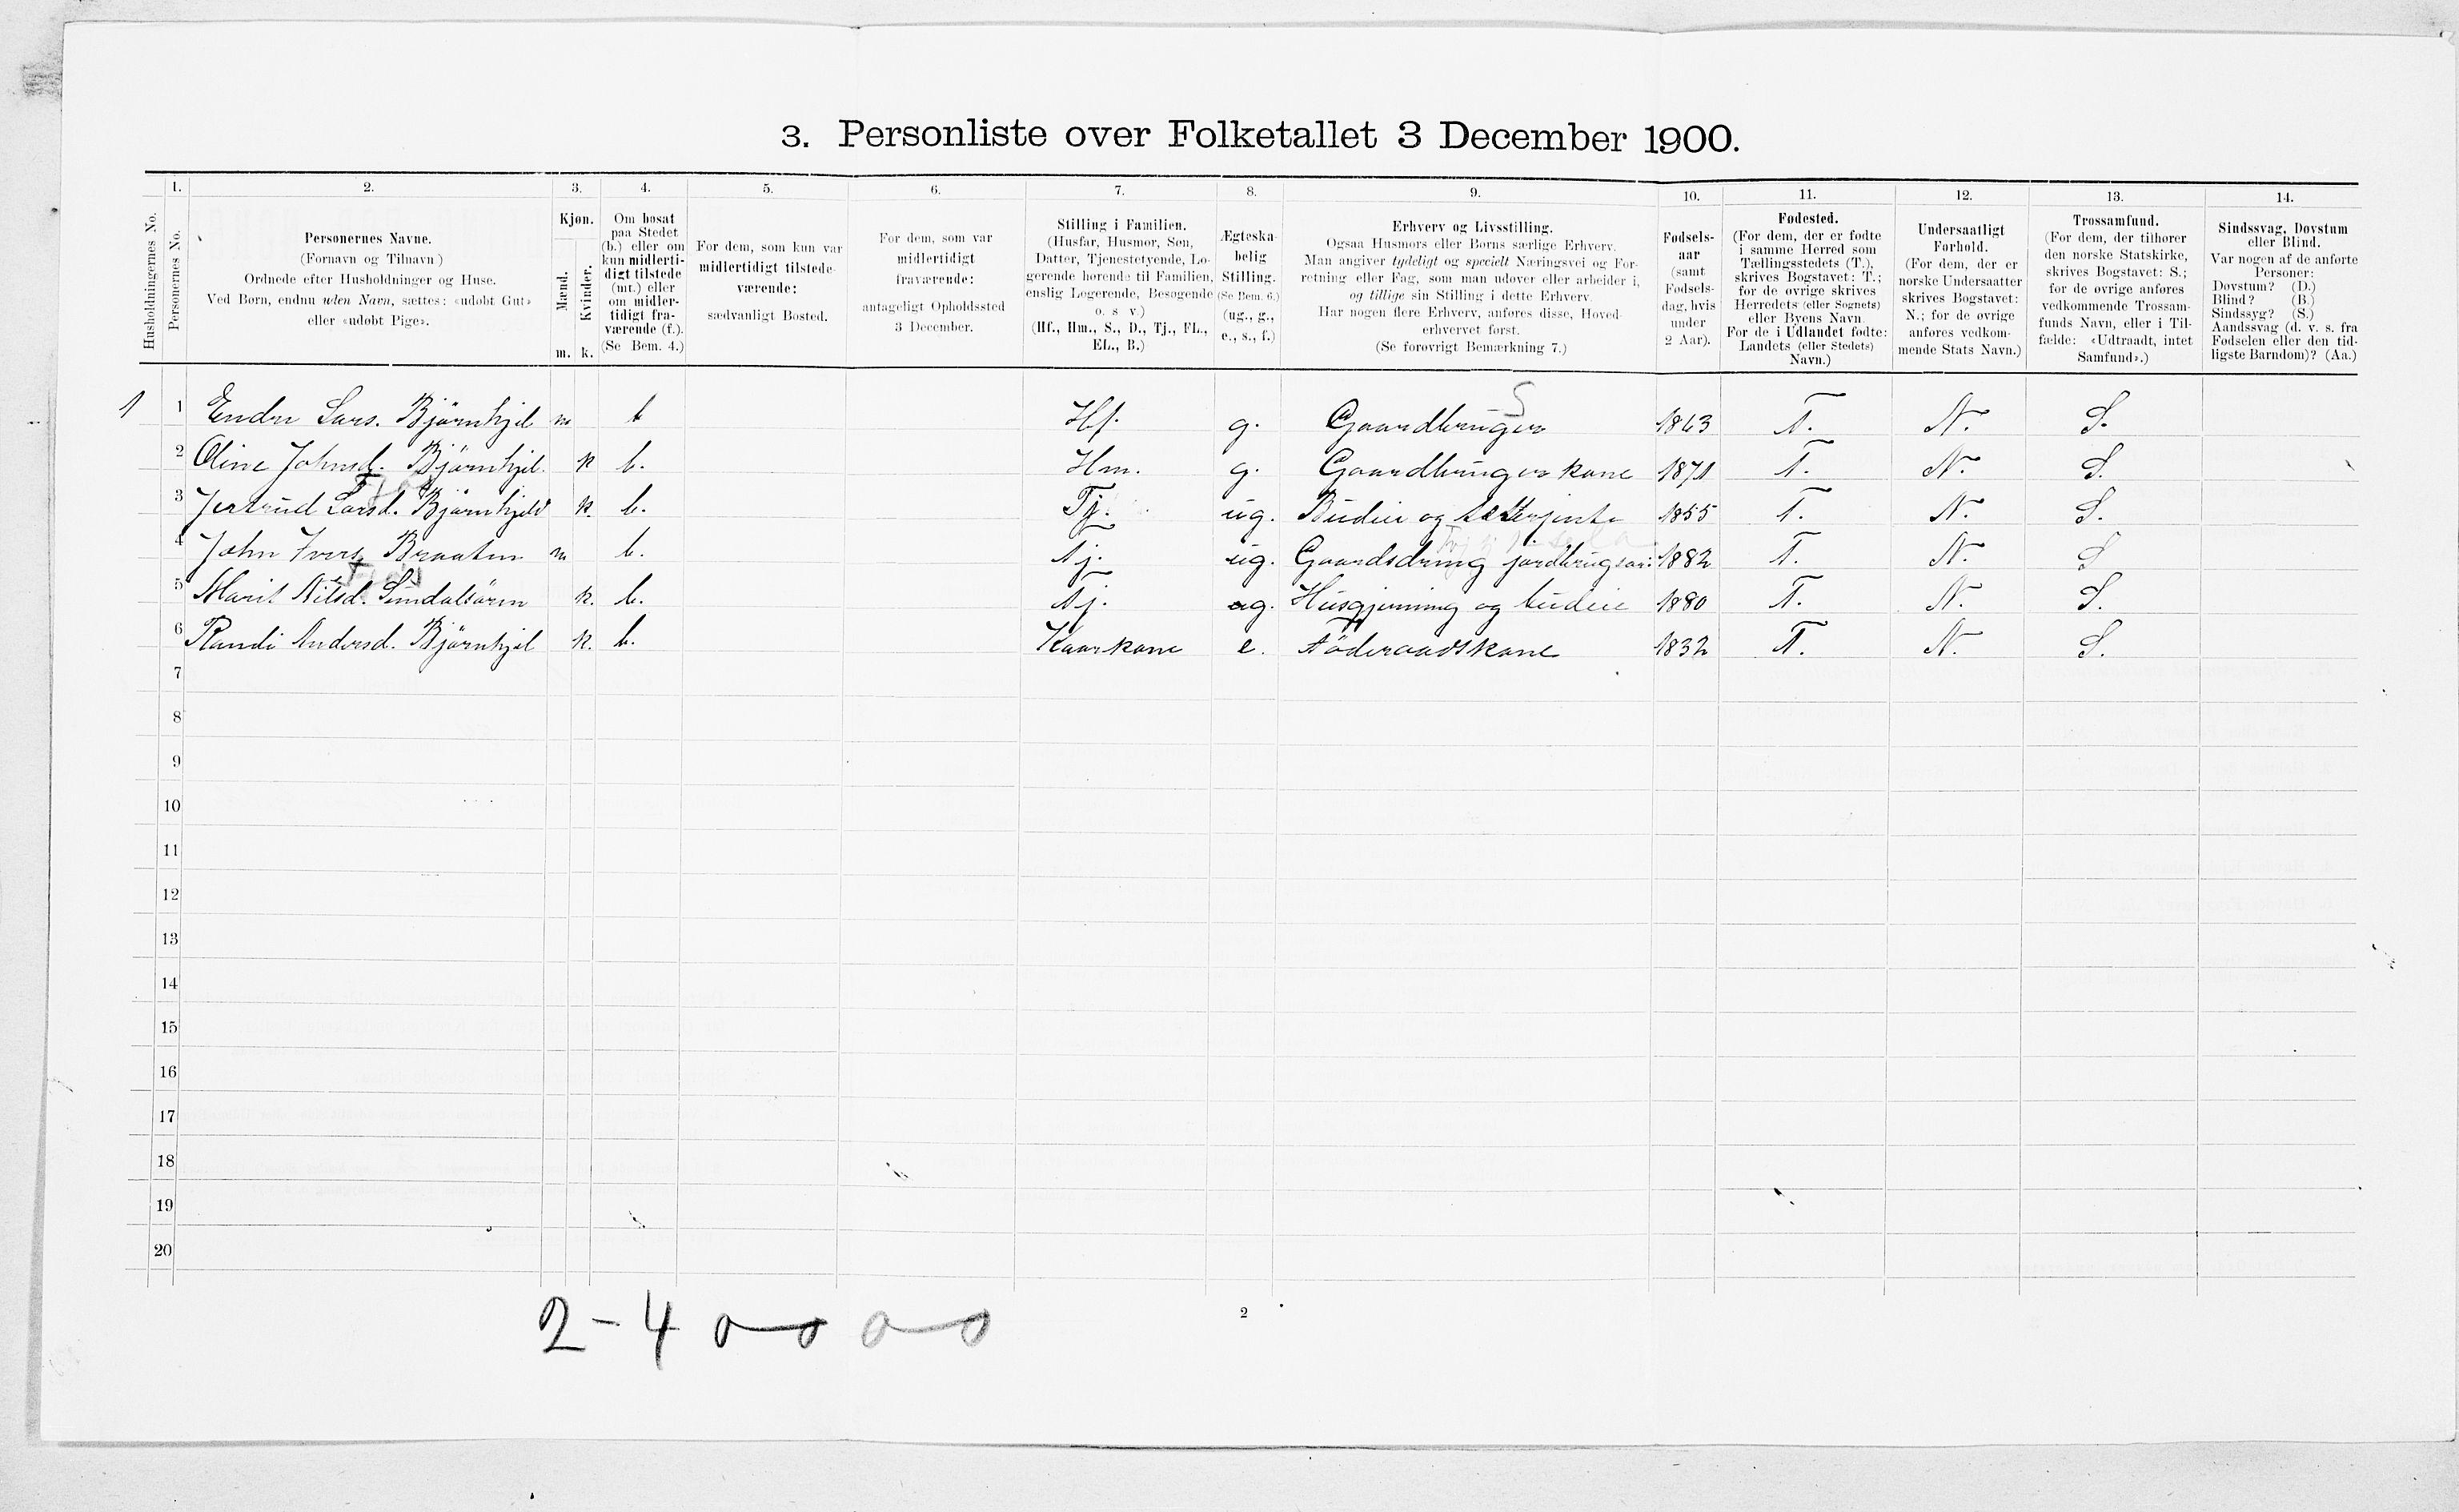 3. Personliste over Folketallet 3 December 1900.
1. 2. 3. 4. 5. 6. 7. 8. 9. 10. 11. 12. 13. 14.
Husholdningernes No.
Personernes No.
Personernes Navne.
(Fornavn og Tilnavn)
Ordnede efter Husholdninger og Huse.
Ved Børn, endnu uden Navn, sættes: «udøbt Gut»
eller «udøbt Pige».
Kjøn.
Mænd.
Kvinder.
m. k.
Om bosat
paa Stedet
(b.) eller om
kun midlerti-
digt tilstede
(mt.) eller
om midler-
tidigt fra-
værende (f.).
(Se Bem. 4.)
For dem, som kun var
midlertidigt tilstede-
værende:
sædvanligt Bosted.
For dem, som var
midlertidigt
fraværende:
antageligt Opholdssted
3 December.
Stilling i Familien.
(Husfar, Husmor, Søn,
Datter, Tjenestetyende, Lo-
gerende hørende til Familien,
enslig Logerende, Besøgende
o. s v.)
(Hf., Hm., S., D., Tj., FL.,
EL., B.)
Ægteska-
belig
Stilling.
(Se Bem. 6.)
(ug., g.,
e., s., f.)
Erhverv og Livsstilling.
Ogsaa Husmors eller Børns særlige Erhverv.
Man angiver tydeligt og specielt Næringsvei og For-
retning eller Fag, som man udøver eller arbeider i,
og tillige sin Stilling i dette Erhverv.
Har nogen flere Erhverv, anføres disse, Hoved-
erhvervet først.
(Se forøvrigt Bemærkning 7.)
Fødsels-
aar
(samt
Fødsels-
dag, hvis
under
2 Aar).
Fødested.
(For dem, der er fødte
i samme Herred som
Tællingsstedets (T.),
skrives Bogstavet: T.;
for de øvrige skrives
Herredets (eller Sognets)
eller Byens Navn.
For de i Udlandet fødte:
Landets (eller Stedets)
Navn.)
Undersaatligt
Forhold.
(For dem, der er
norske Undersaatter
skrives Bogstavet:
N.; for de øvrige
anføres vedkom-
mende Stats Navn.)
Trossamfund.
(For dem, der tilhører
den norske Statskirke,
skrives Bogstavet: S.;
for de øvrige anføres
vedkommende Trossam-
funds Navn, eller i Til-
fælde: «Udtraadt, intet
Samfund».)
Sindssvag, Døvstum
eller Blind.
Var nogen af de anførte
Personer:
Døvstum? (D.)
Blind? (B.)
Sindssyg? (S.)
Aandssvag (d. v. s. fra
Fødselen eller den tid-
ligste Barndom)? (Aa.)
S
1 1 Endre Lars. Björnhjel m b Hf. g. Gaardbruger 1863 T. N. S.
2 Oline Johnsd. Björnhjel. k b. Hm. g. Gaardbruger kone 1871 T. N. S.
3 Jertrud Larsd. Björnhjeld k. b. Tj. ug. Budeie og 1855 T. N. S.
4 John Ivers. Braaten m b. Tj. ug. Gaardsdreng 1882 T. N. S
5 Marit Nilsd. Sundalsören k. b. Tj. ug. Husgjerning og budeie 1880 T. N. S.
6 Randi Andersd. Björnhjel k. b. Kaarkone e. Föderaadskone 1832 T. N. S.
7
8
9
10
11
12
13
14
15
16
17
18
19
20
2
2 - 4 0 - 0 0 - 0